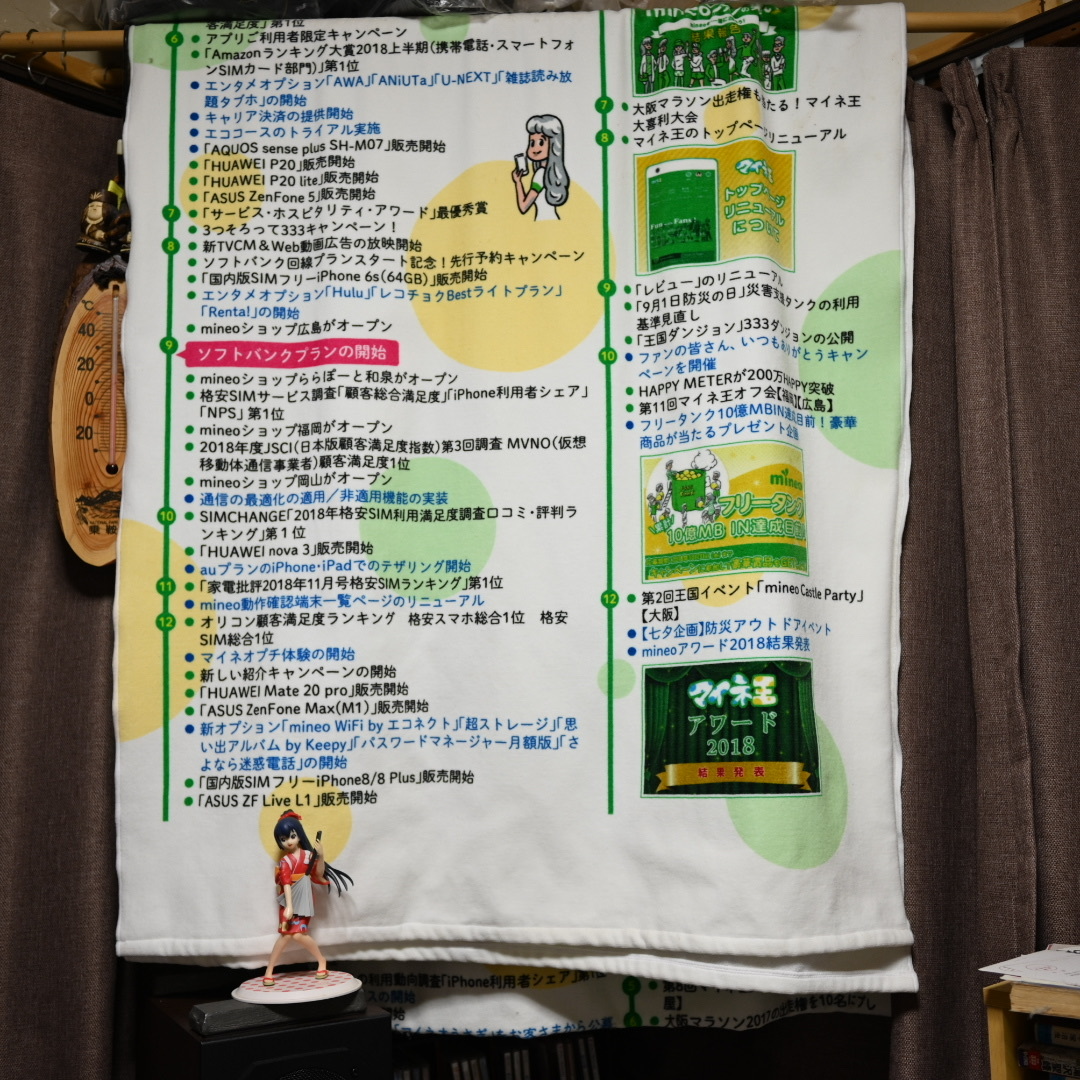 客満足度」第1位
6
アプリご利用者限定キャンペーン
「Amazonランキング大賞2018上半期（携帯電話・スマートフォ
ンSIMカード部門）」第1位
エンタメオプション「AWA」「ANiUTa」「U-NEXT」「雑誌読み放
題タブホ」の開始
キャリア決済の提供開始
エココースのトライアル実施
「AQUOS sense plus SH-M07」販売開始
「HUAWEI P20」販売開始
「HUAWEI P20 lite」販売開始
「ASUS ZenFone 5」販売開始
7
「サービス・ホスピタリティ・アワード」最優秀賞
3つそろって333キャンペーン！
8
新TVCM＆Web動画広告の放映開始
ソフトバンク回線プランスタート記念！先行予約キャンペーン
「国内版SIMフリーiPhone 6s(64GB)」販売開始
エンタメオプション「Hulu」「レコチョクBestライトプラン」
「Renta!」の開始
mineoショップ広島がオープン
9
ソフトバンクプランの開始
mineoショップららぽーと和泉がオープン
格安SIMサービス調査「顧客総合満足度」「iPhone利用者シェア」
「NPS」 第1位
mineoショップ福岡がオープン
2018年度JSCI（日本版顧客満足度指数）第3回調査 MVNO（仮想
移動体通信事業者）顧客満足度1位
mineoショップ岡山がオープン
通信の最適化の適用／非適用機能の実装
10
SIMCHANGE「2018年格安SIM利用満足度調査口コミ・評判ラ
ンキング」第1位
「HUAWEI nova 3」販売開始
auプランのiPhone・iPadでのテザリング開始
11
「家電批評2018年11月号格安SIMランキング」第1位
mineo動作確認端末一覧ページのリニューアル
12
オリコン顧客満足度ランキング　格安スマホ総合1位　格安
SIM総合1位
マイネオプチ体験の開始
新しい紹介キャンペーンの開始
「HUAWEI Mate 20 pro」販売開始
「ASUS ZenFone Max(M1)」販売開始
新オプション「mineo WiFi by エコネクト」「超ストレージ」「思
い出アルバム by Keepy」「パスワードマネージャー月額版」「さ
よなら迷惑電話」の開始
「国内版SIMフリーiPhone8/8 Plus」販売開始
「ASUS ZF Live L1」販売開始
結果報告
7
大阪マラソン出走権も当たる！マイネ王
大喜利大会
8
マイネ王のトップページリニューアル
マイネ王
トップページ
リニューアル
について
Fun — Fans!
9
「レビュー」のリニューアル
「9月1日防災の日」災害支援タンクの利用
基準見直し
「王国ダンジョン」333ダンジョンの公開
10
ファンの皆さん、いつもありがとうキャン
ペーンを開催
HAPPY METERが200万HAPPY突破
第11回マイネ王オフ会【福岡】【広島】
フリータンク10億MBIN達成目前！豪華
商品が当たるプレゼント企画
mineo
フリータンク
10億MB IN達成目前
12
第2回王国イベント「mineo Castle Party」
【大阪】
【七夕企画】防災アウトドアイベント
mineoアワード2018結果発表
マイネ王
アワード
2018
結果発表
℃
40
20
0
20
乗鞍
の利用動向調査「iPhone利用者シェア」第1位
スの開始
5
屋】
大阪マラソン2017の出走権を10名にプレ